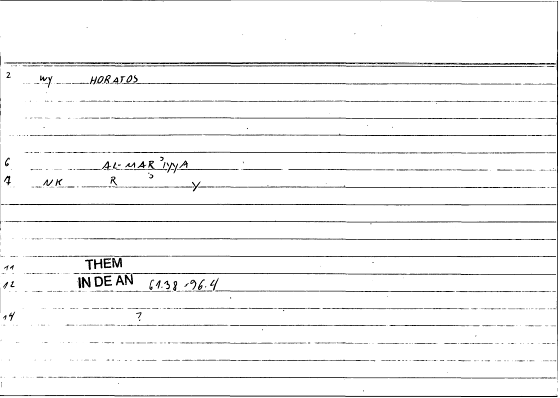 2 WY HORATOS
6 AL-MAR'IYYA
7 NK R ' Y
11 THEM
12 IN DE AN 61.38 -96.4
14 ?